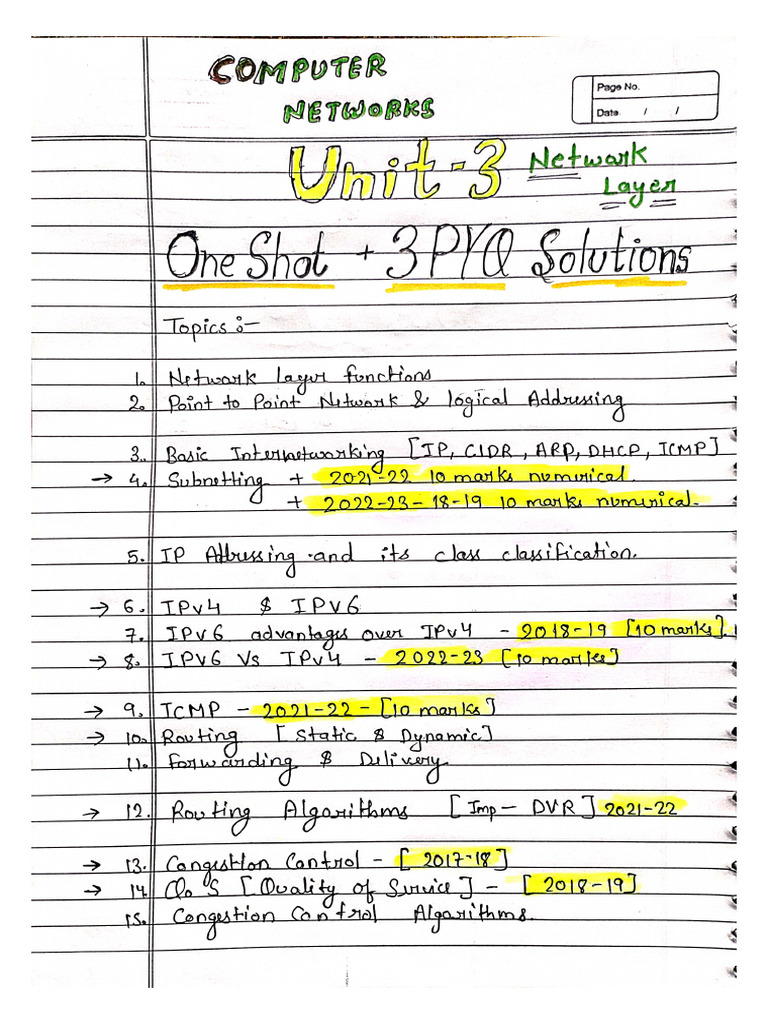 COMPUTER
NETWORKS
Page No.
Date / /
Unit-3 Network
Layer
One Shot + 3 PYQ Solutions
Topics :-
1. Network layer functions
2. Point to Point Network & logical Addressing
3. Basic Internetworking [IP, CIDR, ARP, DHCP, ICMP]
→ 4. Subnetting + 2021-22 10 marks numerical.
+ 2022-23-18-19 10 marks numerical.
5. IP Addressing and its class classification.
→ 6. IPv4 & IPV6
7. IPV6 advantages over IPv4 - 2018-19 [10 marks].
→ 8. IPV6 Vs IPV4 - 2022-23 [10 marks]
→ 9. ICMP - 2021-22 - [10 marks]
→ 10. Routing [Static & Dynamic]
11. Forwarding & Delivery.
→ 12. Routing Algorithms [Imp - DVR] 2021-22
→ 13. Congestion Control - [2017-18]
→ 14. QoS [Quality of Service] - [2018-19]
15. Congestion Control Algorithms.